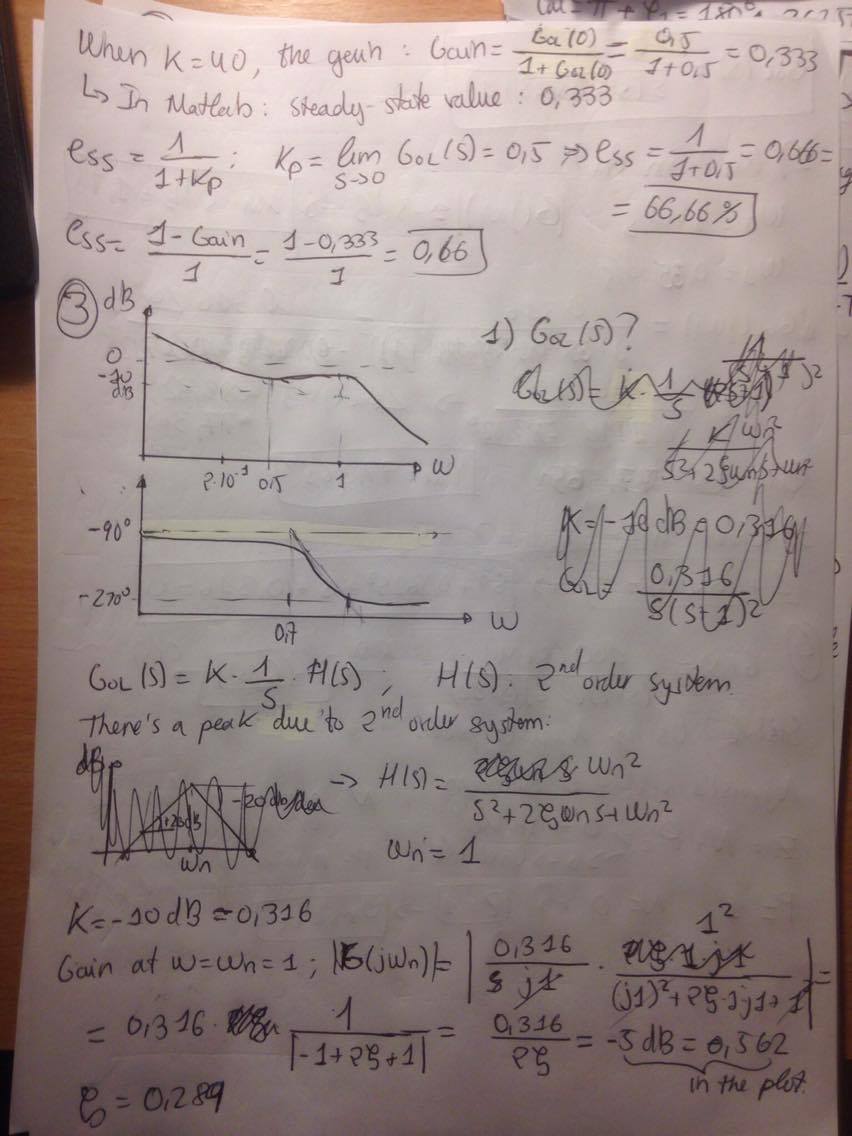 When K=40, the geun : Gain= GOL(0) / 1+GOL(0) = 0,5 / 1+0,5 = 0,333
↳ In Matlab : steady-state value : 0,333
ess = 1 / 1+Kp ; Kp = lim s→0 GOL(s) = 0,5 ⇒ ess = 1 / 1+0,5 = 0,666 =
= 66,66%
ess = 1-Gain / 1 = 1-0,333 / 1 = 0,66
③ dB
1) GOL(s)?
0
-10 dB
2·10⁻¹ 0,5 1 ω
K = -10 dB = 0,316
-90°
-270°
0,7 ω
GOL(s) = K · 1/s · H(s) ; H(s) : 2nd order system.
There's a peak due to 2nd order system:
dB
→ H(s) = ωn² / s²+2ξωns+ωn²
ωn
ωn = 1
K = -10 dB = 0,316
Gain at ω=ωn=1 ; |G(jωn)| = | 0,316 / j1 · 1² / (j1)²+2ξ·1j1+1² | =
= 0,316 · 1 / |-1+2ξ+1| = 0,316 / 2ξ = -5 dB = 0,562
in the plot.
ξ = 0,289